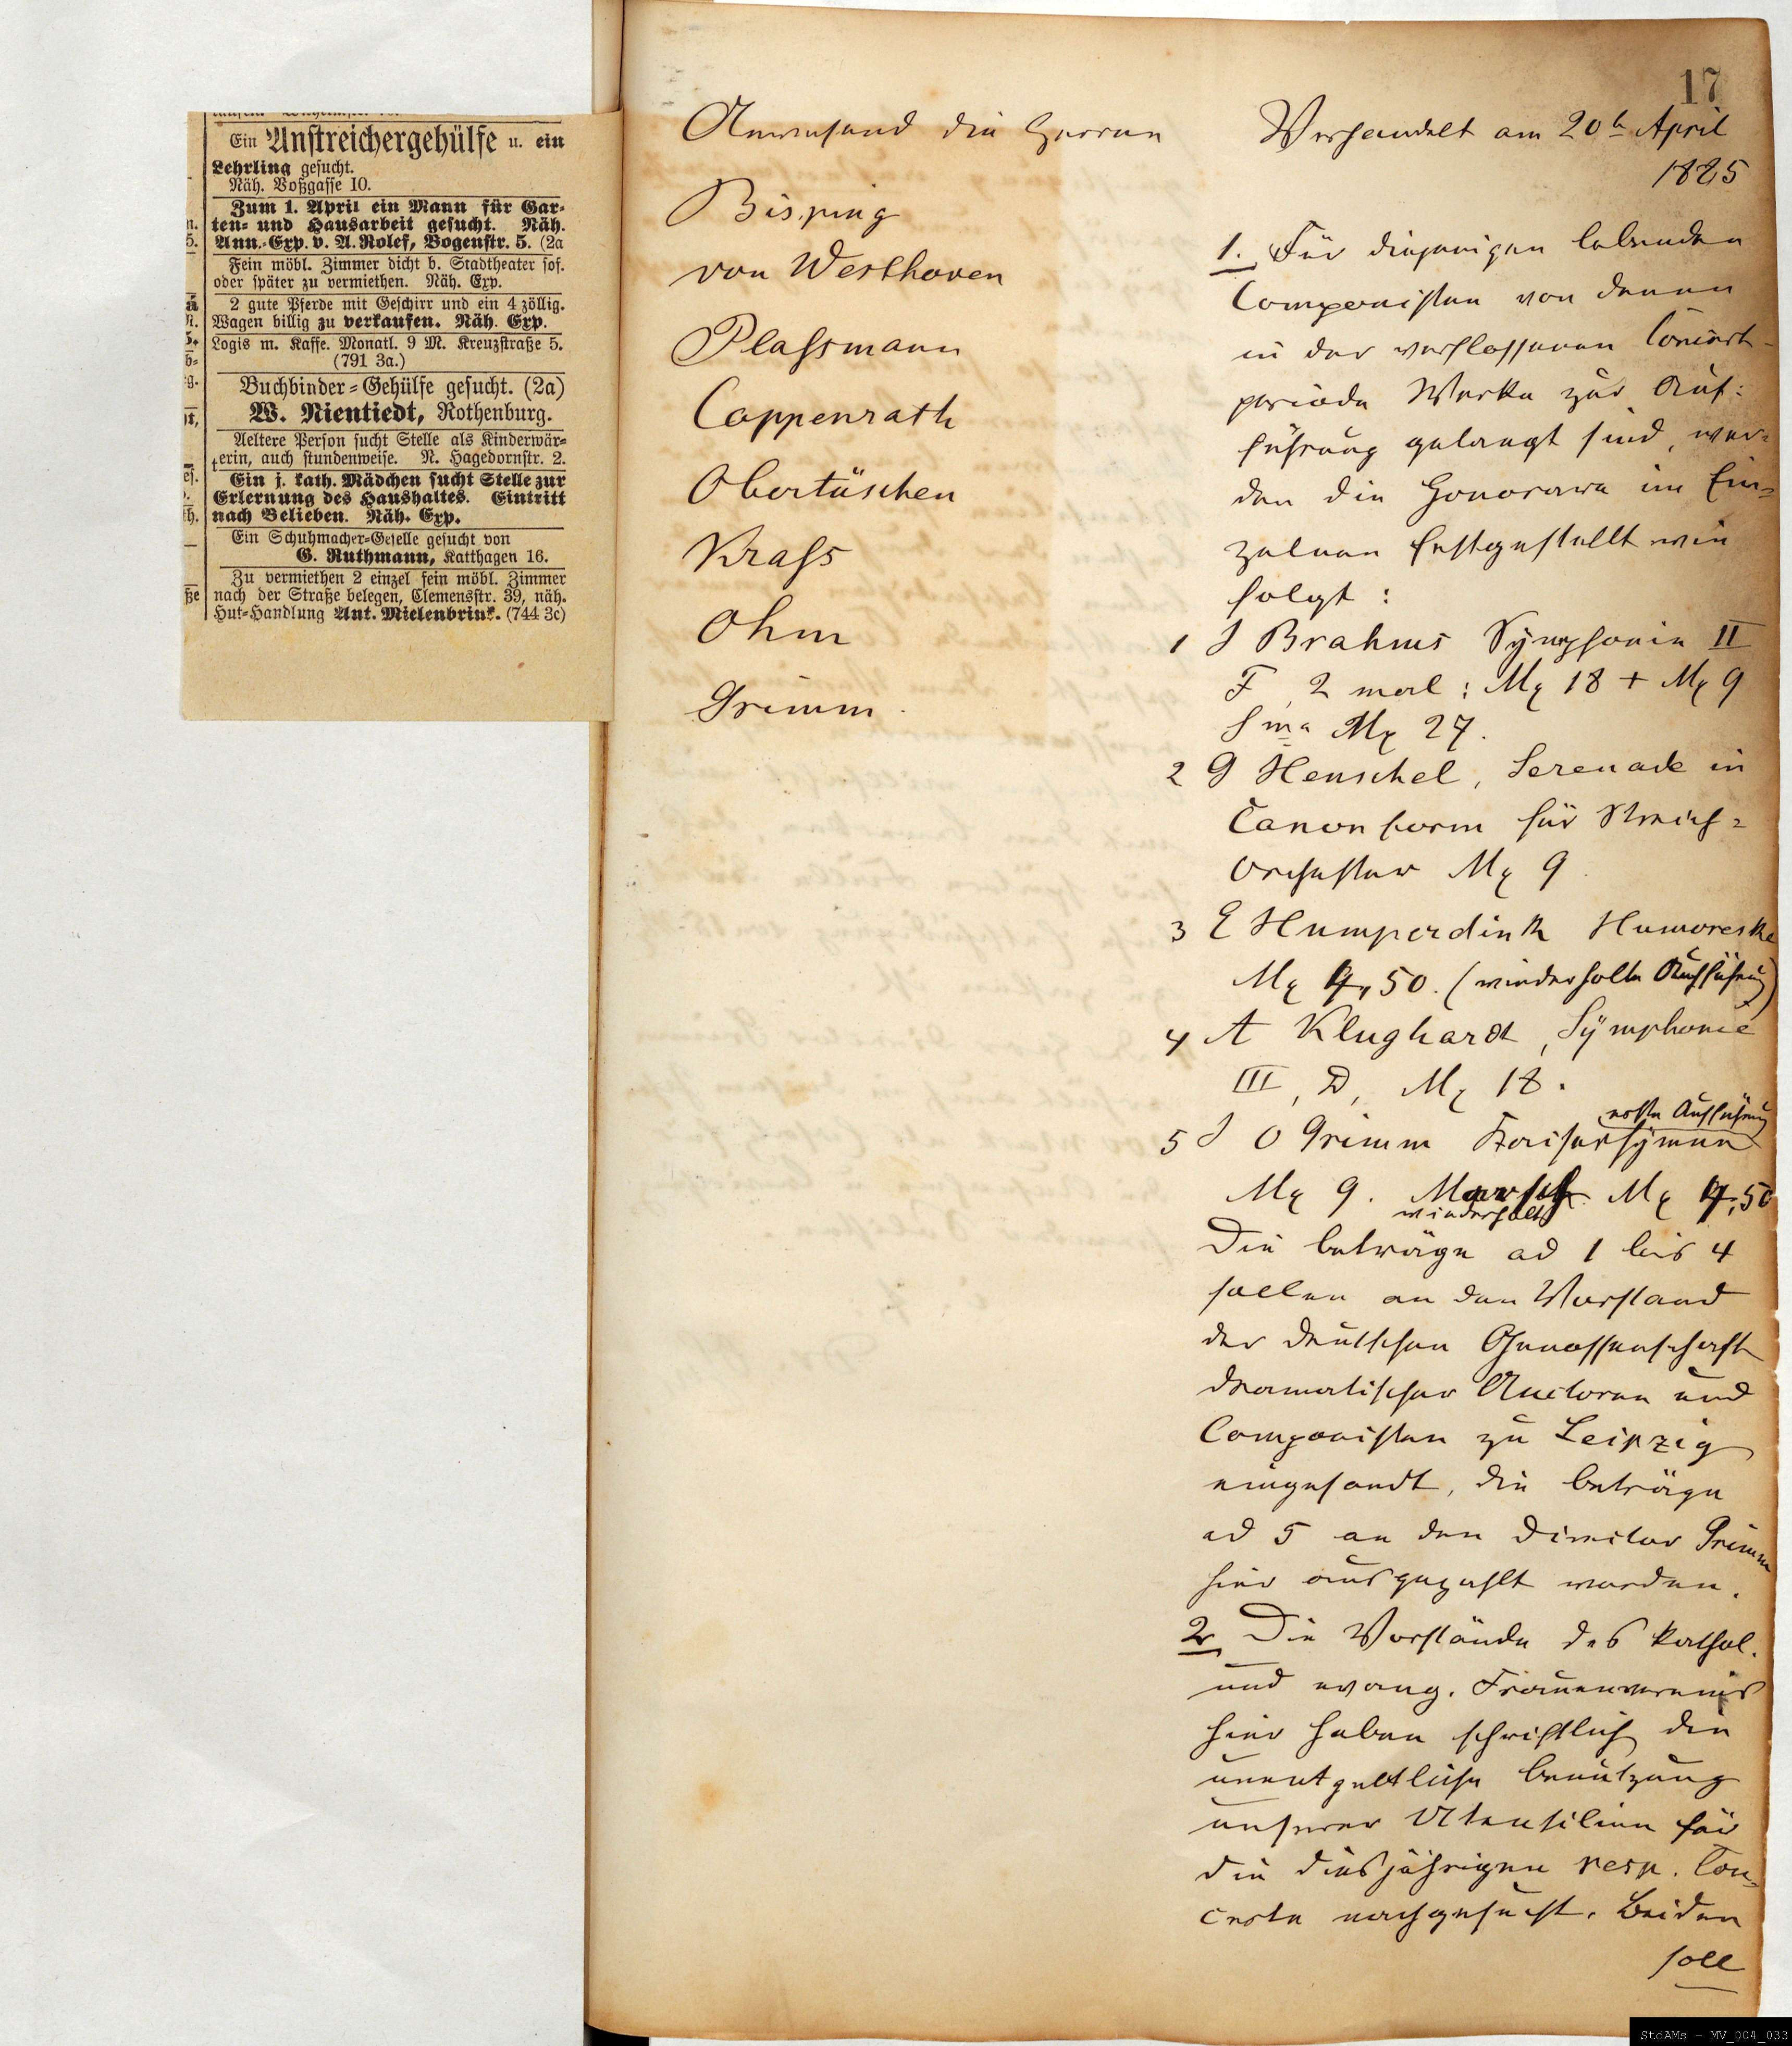 Ein Anstreichergehülfe u. ein
Lehrling gesucht.
Näh. Voßgasse 10.
Zum 1. April ein Mann für Gar-
ten- und Hausarbeit gesucht. Näh.
Ann.-Exp. v. A. Rolef, Bogenstr. 5. (2a
Fein möbl. Zimmer dicht b. Stadtheater sof.
oder später zu vermiethen. Näh. Exp.
2 gute Pferde mit Geschirr und ein 4 zöllig.
Wagen billig zu verkaufen. Näh. Exp.
Logis m. Kaffe. Monatl. 9 M. Kreuzstraße 5.
(791 3a.)
Buchbinder-Gehülfe gesucht. (2a)
W. Nientiedt, Rothenburg.
Aeltere Person sucht Stelle als Kinderwär-
terin, auch stundenweise. N. Hagedornstr. 2.
Ein j. kath. Mädchen sucht Stelle zur
Erlernung des Haushaltes. Eintritt
nach Belieben. Näh. Exp.
Ein Schuhmacher-Geselle gesucht von
G. Ruthmann, Katthagen 16.
Zu vermiethen 2 einzel fein möbl. Zimmer
nach der Straße belegen, Clemensstr. 39, näh.
Hut-Handlung Ant. Mielenbrink. (744 3c)
Anwesend die Herren
Bisping
von Westhoven
Plassmann
Coppenrath
Obertüschen
Krass
Ohm
Grimm.
17
Verhandelt am 20t April
1885
1. Für diejenigen lebenden
Componisten von denen
in der verflossenen Concert-
periode Werke zur Auf:
führung gelangt sind, wer-
den die Honorare im Ein=
zelnen festgestellt wie
folgt:
1 J Brahms Symphonie II
F, 2 mal: Mk 18 + Mk 9
Sma Mk 27.
2 G Henschel, Serenade in
Canonform für Streich=
orchester Mk 9.
3 E Humperdink Humoreske
Mk 4,50. (wiederholte Aufführung)
4 A Klughardt, Symphonie
III, D, Mk 18.
erste Aufführung
5 J O Grimm Kaiserhymne
Mk 9. Marsch Mk 4,50
wiederholt
Die beträge ad 1 bis 4
sollen an den Vorstand
der deutschen Genossenschaft
dramatischer Auctoren und
Componisten zu Leipzig
eingesandt, die beträge
ad 5 an den Director Grimm
hier ausgezahlt werden.
2. Die Vorstände des kathol.
und evang. Frauenvereins
hier haben schriftlich die
unentgeltliche benutzung
unserer Utensilien für
die diesjährigen resp. Con-
certe nachgesucht. Beiden
soll
StdAMs - MV_004_033